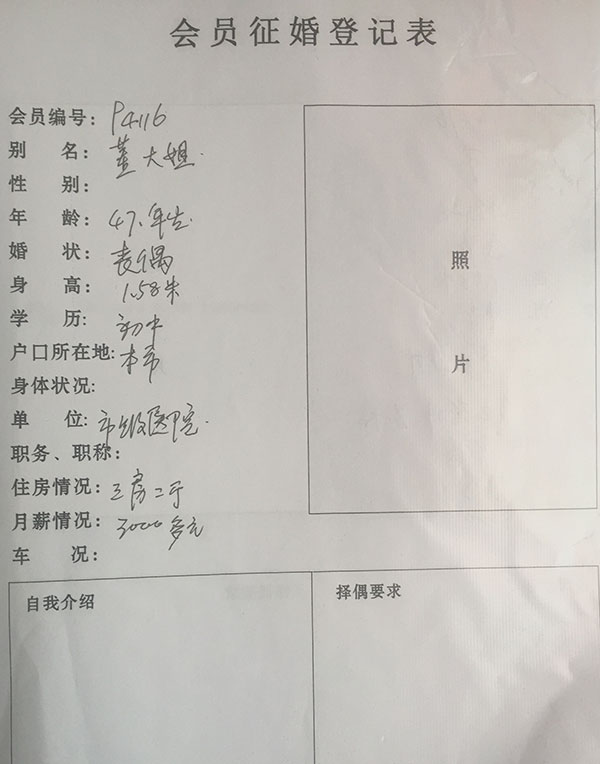 会员征婚登记表
会员编号：P4116
别 名：董大姐.
性 别：
年 龄：47.年生.
婚 状：丧偶
身 高：1.58米
学 历：初中
户口所在地：本市
身体状况：
单 位：市级医院.
职务、职称：
住房情况：三房二厅
月薪情况：3000多元
车 况：
照
片
自我介绍
择偶要求